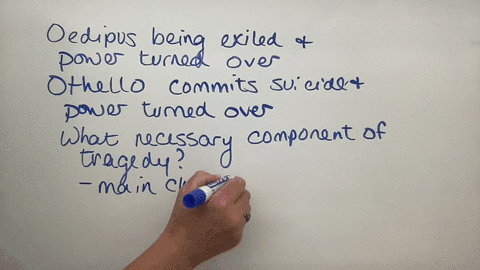 Oedipus being exiled +
power turned over
Othello commits suicide +
power turned over
What necessary component of
tragedy?
- main